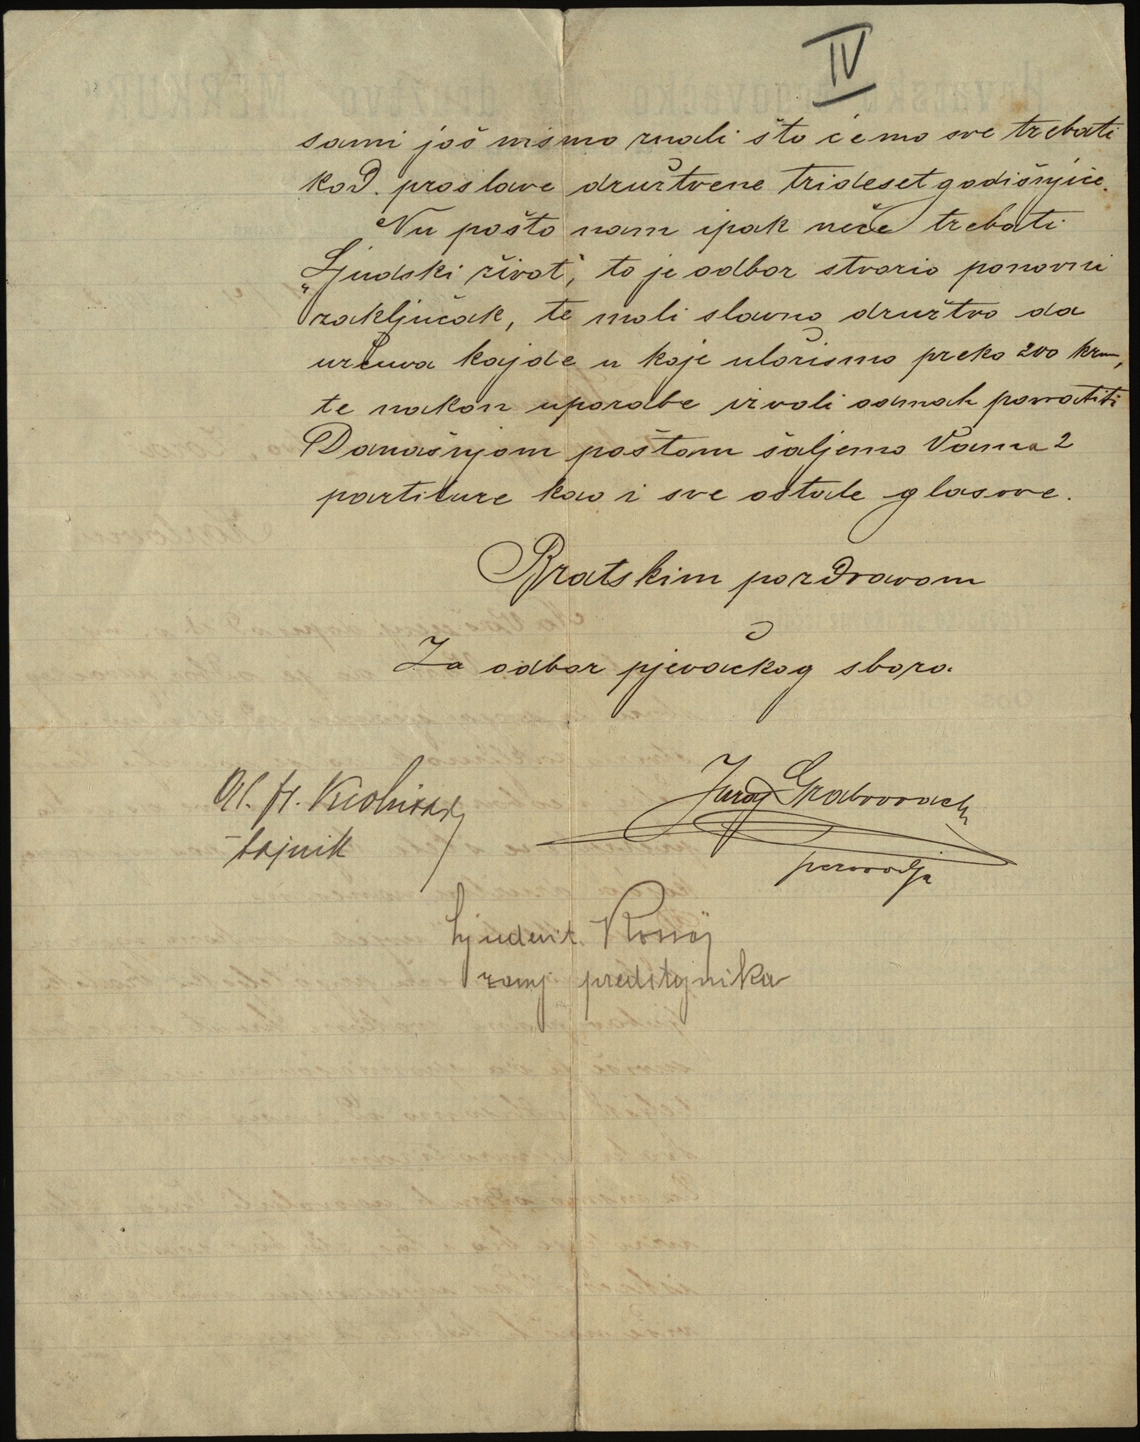 IV
sami još nismo znali što ćemo sve trebati
kod. proslave družtvene trideset godišnjice.
Nu pošto nam ipak neće trebati
„Ljudski život“, to je odbor stvorio ponovni
zaključak, te moli slavno družtvo da
uzčuva kajde u koje uložismo preko 200 krun,
te nakon uporabe izvoli odmah povratiti
Današnjom poštom šaljemo Vama 2
partiture kao i sve ostale glasove.
Bratskim pozdravom
Za odbor pjevačkog sbora
Juraj
tajnik
perovodja
Ljudevit
zamj. predstojnika